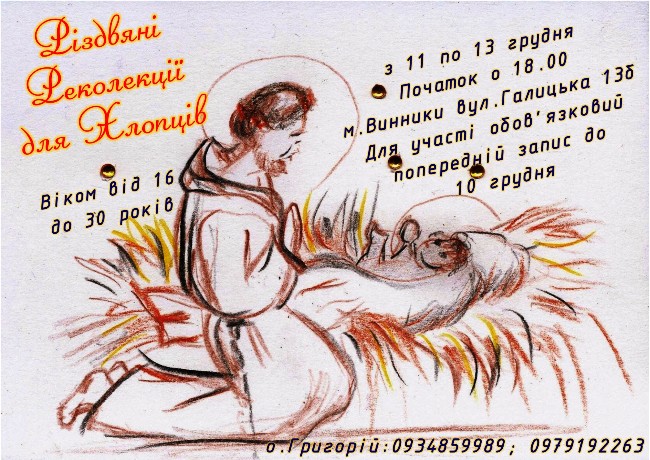 Різдвяні
Реколекції
для Хлопців
Віком від 16
до 30 років
з 11 по 13 грудня
Початок о 18.00
м.Винники вул.Галицька 13б
Для участі обов'язковий
попередній запис до
10 грудня
о.Григорій:0934859989; 0979192263